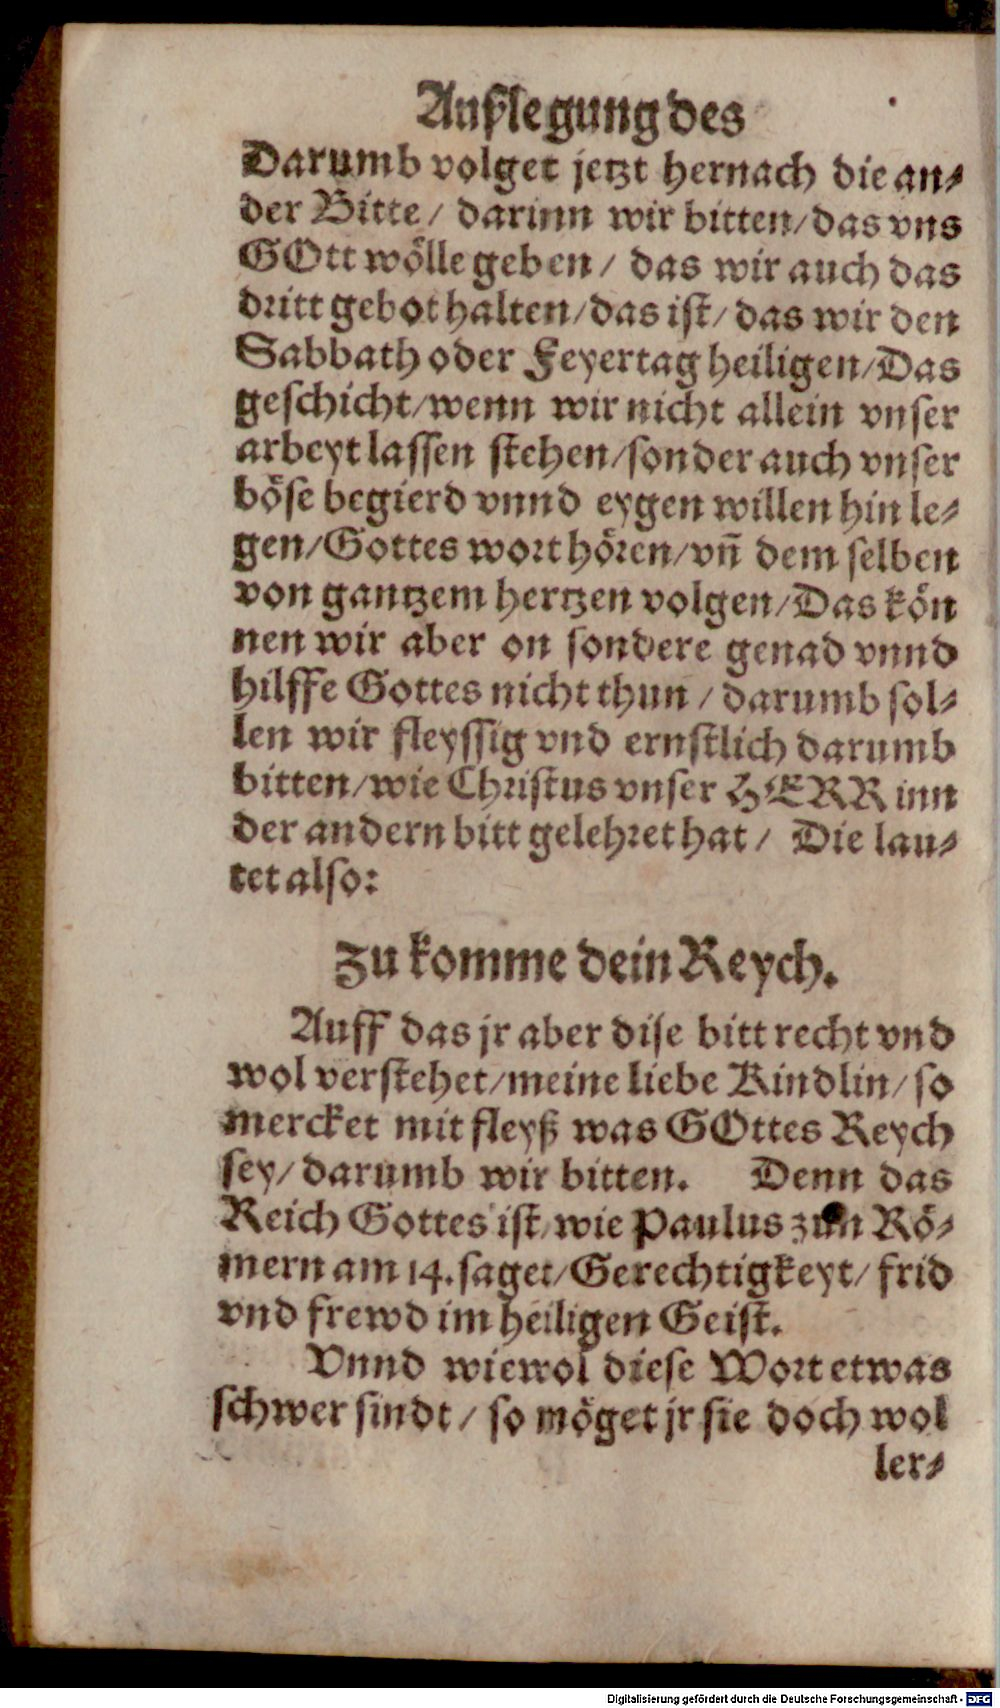 Außlegung des
Darumb volget jetzt hernach die an⸗
der Bitte / darinn wir bitten / das vns
GOtt wölle geben / das wir auch das
dritt gebot halten / das ist / das wir den
Sabbath oder Feyertag heiligen / Das
geschicht / wenn wir nicht allein vnser
arbeyt lassen stehen / sonder auch vnser
böse begierd vnnd eygen willen hin le⸗
gen / Gottes wort hören / vñ dem selben
von gantzem hertzen volgen / Das kön
nen wir aber on sondere genad vnnd
hilffe Gottes nicht thun / darumb sol⸗
len wir fleyssig vnd ernstlich darumb
bitten / wie Christus vnser HERR inn
der andern bitt gelehret hat / Die lau⸗
tet also:
Zu komme dein Reych.
Auff das jr aber dise bitt recht vnd
wol verstehet / meine liebe Kindlin / so
mercket mit fleyß was GOttes Reych
sey / darumb wir bitten. Denn das
Reich Gottes ist / wie Paulus zun Rö⸗
mern am 14. saget / Gerechtigkeyt / frid
vnd frewd im heiligen Geist.
Vnnd wiewol diese Wort etwas
schwer sindt / so möget jr sie doch wol
ler⸗
Digitalisierung gefördert durch die Deutsche Forschungsgemeinschaft - DFG